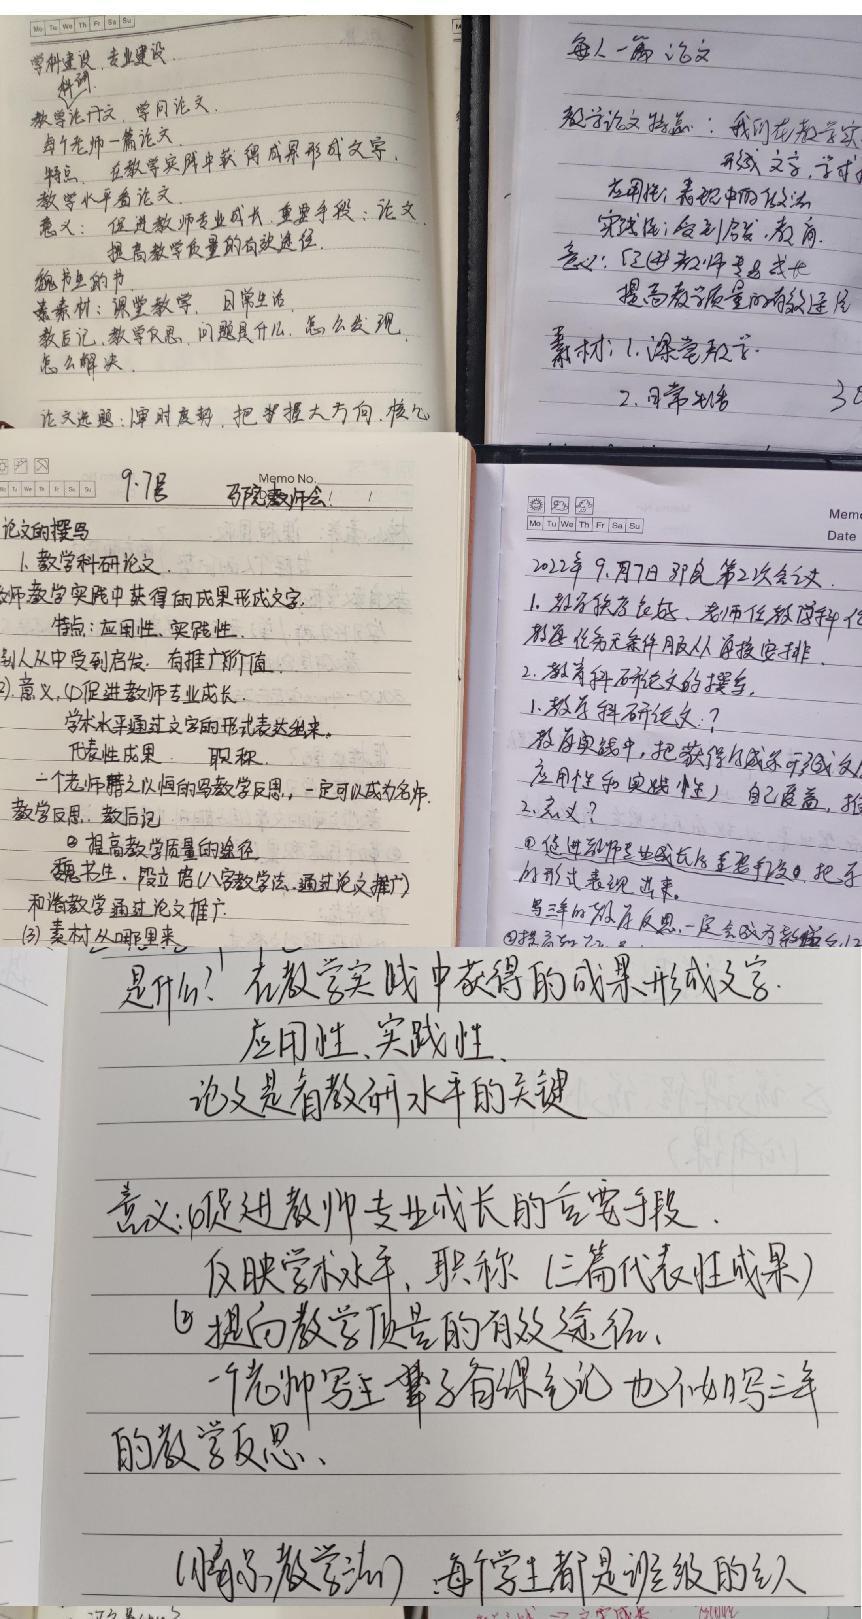 Mo Tu We Th Fr Sa Su
学科建设、专业建设
科研
教学论文 学问论文
每个老师一篇论文
特点 在教学实践中获得成果形成文字,
教学水平看论文
意义: 促进教师专业成长 重要手段:论文
提高教学质量的有效途径
素材:课堂教学, 日常生活
教后记、教学反思 问题是什么 怎么发现
怎么解决
论文选题:审时度势, 把握大方向、核心
每人一篇论文
教学论文特点: 我们在教学实
形成文字,学术
应用性:
实践性:受到启发、教育.
意义:促进教师专业成长
提高教学质量的有效途径
素材:1.课堂教学.
2.日常生活
9.7日
Memo No.
马院教师会!
Mo Tu We Th Fr Sa Su
论文的撰写
1、教学科研论文.
师教学实践中获得的成果形成文字.
特点:应用性、实践性.
别人从中受到启发. 有推广价值.
2).意义,(1)促进教师专业成长.
学术水平通过文字的形式表达出来。
代表性成果. 职称.
一个老师持之以恒的写教学反思,一定可以成为名师.
教学反思、教后记
② 提高教学质量的途径
魏书生.段立培(八字教学法,通过论文推广)
和谐教学通过论文推广.
(3) 素材从哪里来
Mo Tu We Th Fr Sa Su
Memo
Date
2022年9.月7日 第2次会议.
1.教学秩序 老师任教
教学任务无条件服从学校安排.
2.教育科研论文的撰写.
1.教学科研论文?
教学实践中,把获得的成果形成文
应用性和实践性) 自己受益,推
2.意义?
①促进教师专业成长的重要手段。把学
的形式表现出来。
写三年的教学反思,一定会成为
是什么? 在教学实践中获得的成果形成文字.
应用性、实践性、
论文是看教研水平的关键
意义:(1)促进教师专业成长的重要手段.
反映学术水平、职称(三篇代表性成果)
(2)提高教学质量的有效途径、
一个老师写一辈子备课笔记也不如写三年
的教学反思、
(情景教学法) 每个学生都是班级的主人